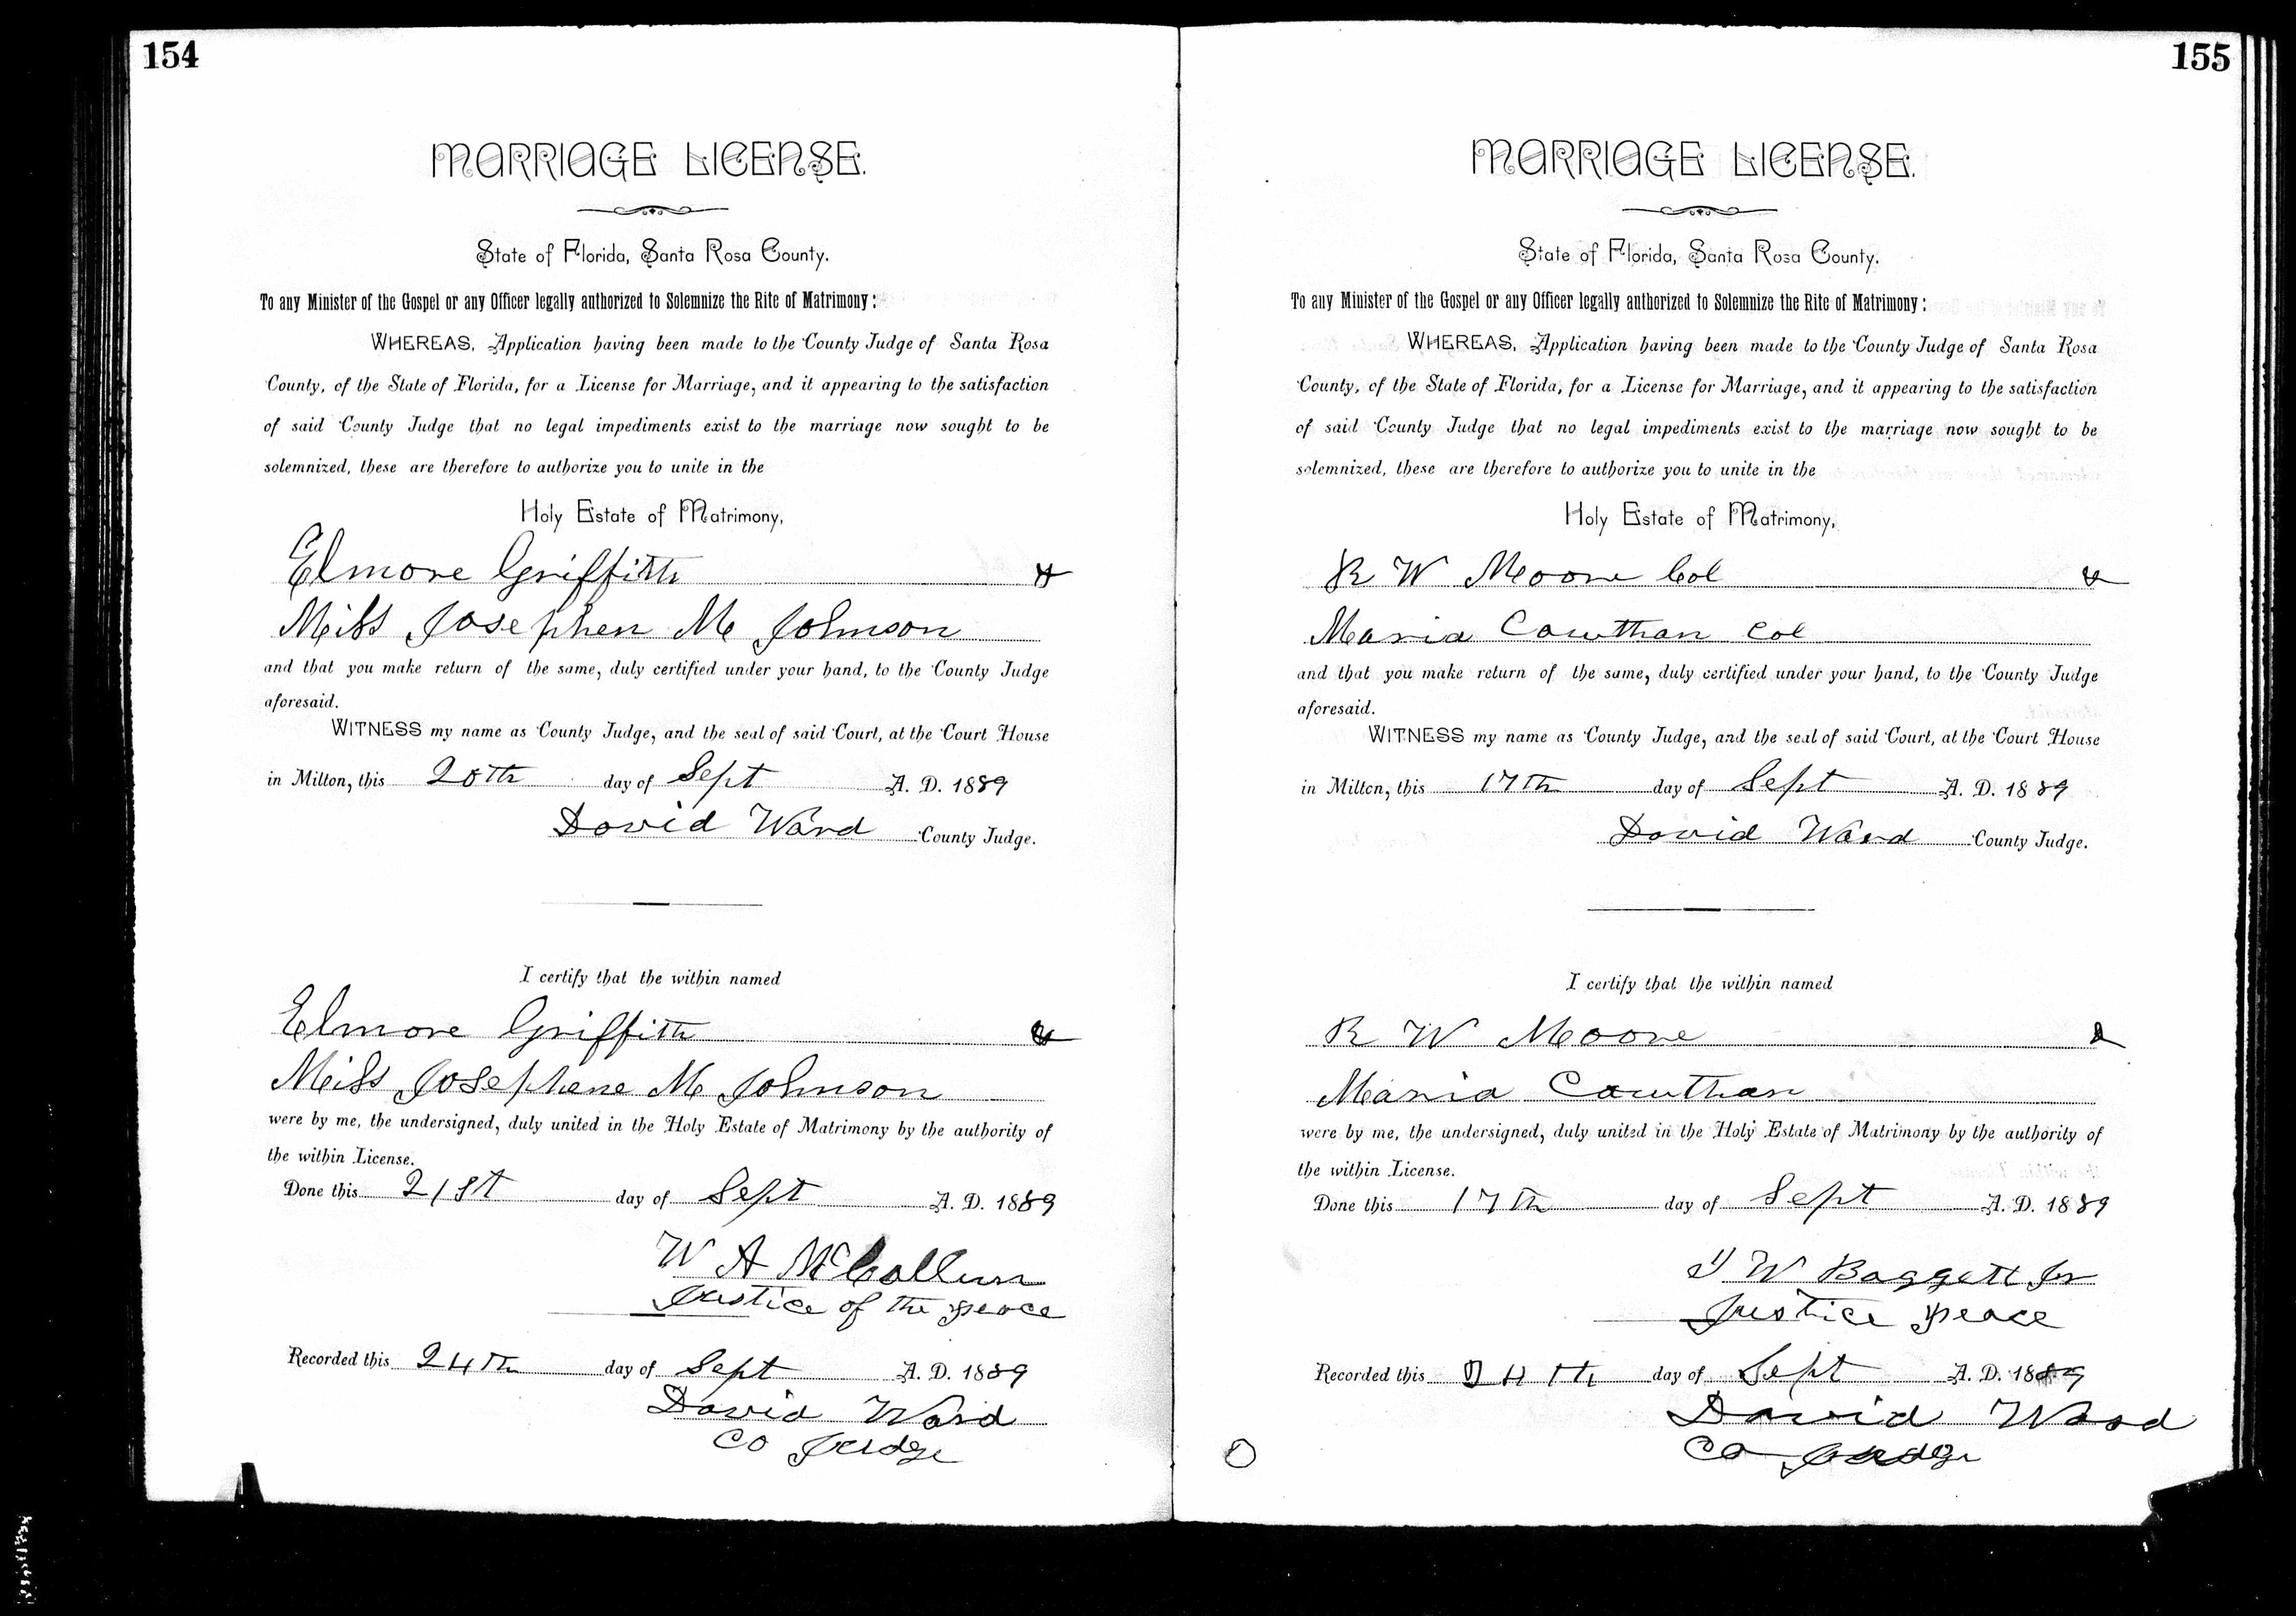 154
MARRIAGE LICENSE.
State of Florida, Santa Rosa County.
To any Minister of the Gospel or any Officer legally authorized to Solemnize the Rite of Matrimony:
WHEREAS, Application having been made to the County Judge of Santa Rosa
County, of the State of Florida, for a License for Marriage, and it appearing to the satisfaction
of said County Judge that no legal impediments exist to the marriage now sought to be
solemnized, these are therefore to authorize you to unite in the
Holy Estate of Matrimony,
Elmore Griffith &
Miss Josephen M Johnson
and that you make return of the same, duly certified under your hand, to the County Judge
aforesaid.
WITNESS my name as County Judge, and the seal of said Court, at the Court House
in Milton, this 20th day of Sept A. D. 1889
David Ward County Judge.
I certify that the within named
Elmore Griffith &
Miss Josephene M Johnson
were by me, the undersigned, duly united in the Holy Estate of Matrimony by the authority of
the within License.
Done this 21st day of Sept A. D. 1889
W A McCollum
Justice of the peace
Recorded this 24th day of Sept A. D. 1889
David Ward
Co Judge
155
MARRIAGE LICENSE.
State of Florida, Santa Rosa County.
To any Minister of the Gospel or any Officer legally authorized to Solemnize the Rite of Matrimony:
WHEREAS, Application having been made to the County Judge of Santa Rosa
County, of the State of Florida, for a License for Marriage, and it appearing to the satisfaction
of said County Judge that no legal impediments exist to the marriage now sought to be
solemnized, these are therefore to authorize you to unite in the
Holy Estate of Matrimony,
R W Moore Col &
Maria Cawthan Col
and that you make return of the same, duly certified under your hand, to the County Judge
aforesaid.
WITNESS my name as County Judge, and the seal of said Court, at the Court House
in Milton, this 17th day of Sept A. D. 1889
David Ward County Judge.
I certify that the within named
R W Moore &
Maria Cawthan
were by me, the undersigned, duly united in the Holy Estate of Matrimony by the authority of
the within License.
Done this 17th day of Sept A. D. 1889
W Baggett Jr
Justice peace
Recorded this 24th day of Sept A. D. 1889
David Ward
Co Judge